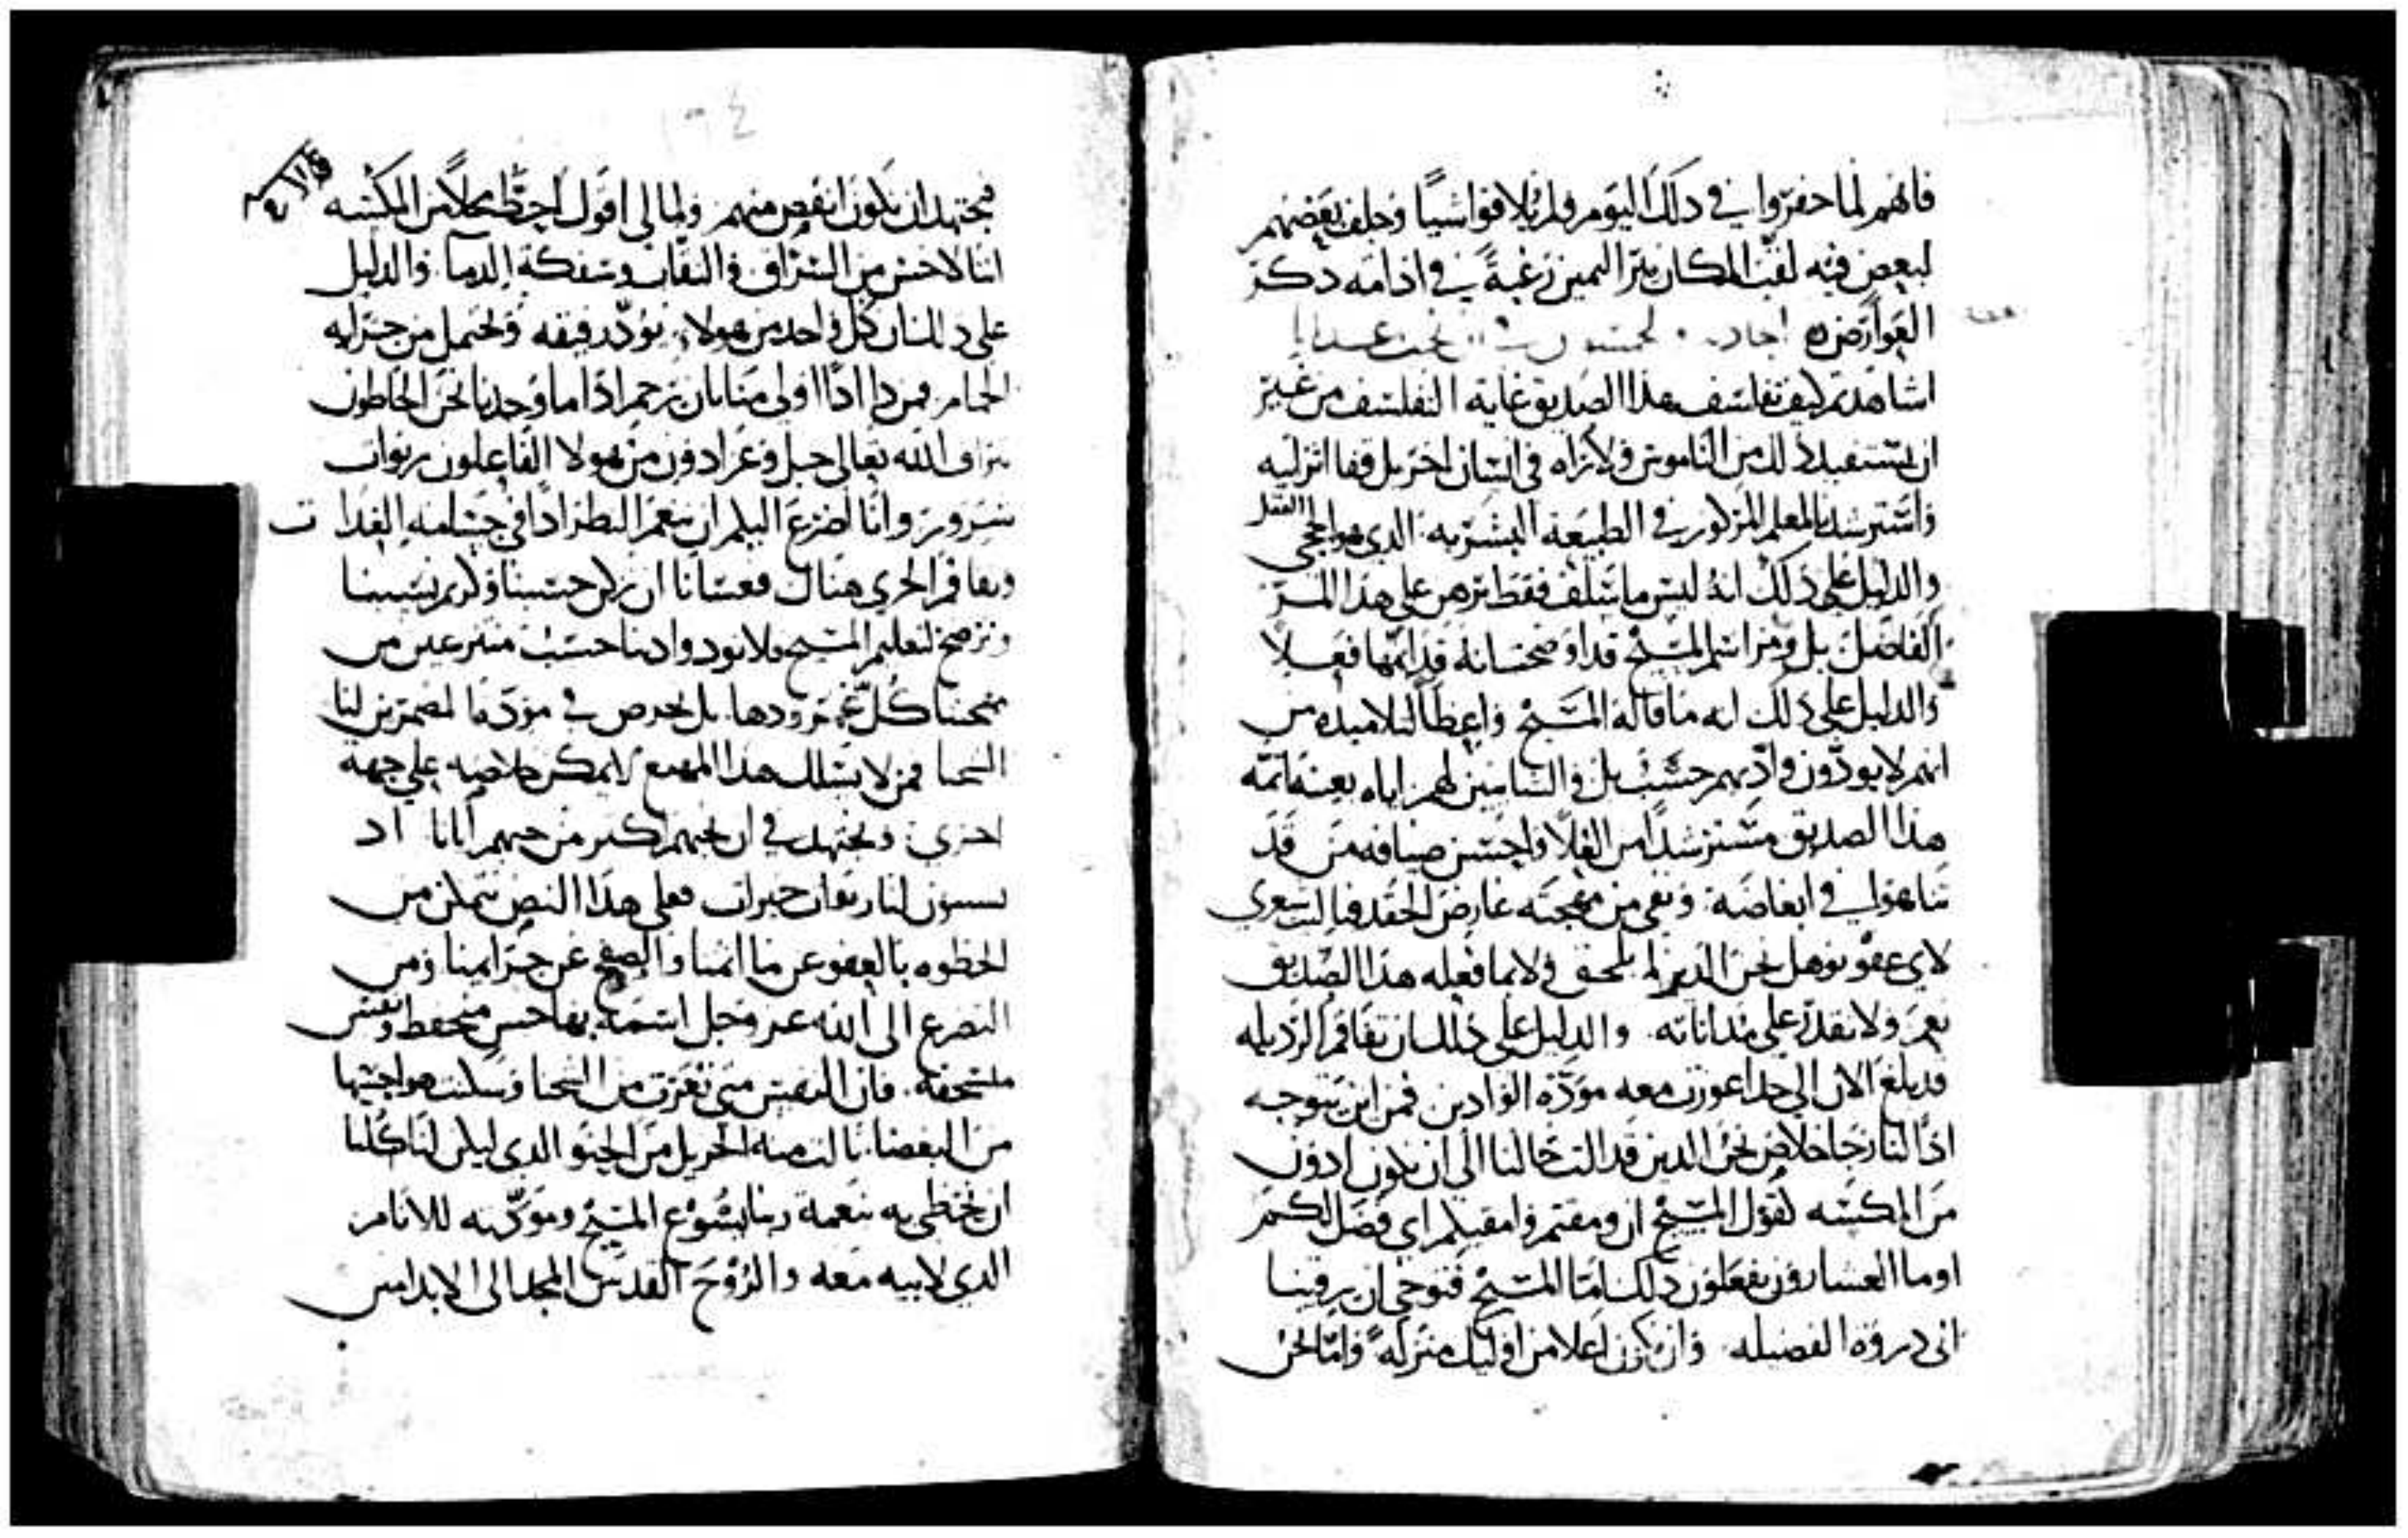 فانهم لما حفروا في ذلك اليوم ولم يلاقوا شيا وحلف بعضهم
لبعض فيه لقب المكان بير اليمين رغبة في اذامه ذكر
العوارض
اشاهدتم كيف تفلسف هذا الصديق غاية التفلسف من غير
ان يستفيد ذلك من الناموس ولا تراه في انسان اخر بل قفا اثر ابيه
واسترشد بالمعلم المركوز في الطبيعة البشرية الذي هو الحجى العقل
والدليل على ذلك انه ليس ما سلف فقط برهن على هذا المر
الفاضل بل ومراسم المسيح قد اوضحت انه قد اتمها فعلا
والدليل على ذلك انه ما قاله المسيح واعظا لتلاميذه من
انهم لا يودون وادهم حسب بل والشانين لهم اياه بعينه اتمه
هذا الصديق مسترشدا من العلا واحسن ضيافه من قد
تناهوا في ابغاضه ونفى من مهجته عارض الحقد فيا ليت شعري
لاي عفو نوهل نحن الذين لم نلحق ولا بما فعله هذا الصديق
نعم ولا نقدر على مداناته والدليل على ذلك ان تفاقم الرذيله
قد بلغ الان الى حد اعوزت معه مودة الوادين فمن اين يتوجه
اذا لنا رجا خلاص نحن الذين قد الت حالنا الى ان نكون ادون
من المكسه لقول المسيح ان ومقتم وامقيكم اي فضل لكم
اوما العشارون يفعلون ذلك اما المسيح فتوخى ان يرقينا
الى ذروة الفضيله وان نكون اعلا من اوليك منزلة واما نحن
فنجتهد ان نكون انقص منهم ولما لي اقول احط محلا من المكسه
اننا لاخس من السراق والنقاب وسفكة الدما والدليل
على ذلك ان كل واحد من هولاء يود رفيقه ويحتمل من جرايه
الحمام فمن ذا اذا اولى منا بان يرحم اذا ما وجدنا نحن الخاطون
براف الله تعالى جل وعز ادون من هولا الفاعلون ربوات
شرور وانا لضرع اليكم ان ننعم النظر اذا في جسامة الغدا ت
وتفاقم الخزي هناك فعسانا ان نزكن حسبنا وكريم نسبنا
ونرضخ لتعليم المسيح فلا نود وادينا حسب منتزعين من
مهجتنا كل غم يرودها بل نحرص في مودة المضمرين لنا
الشحنا فمن لا يسلك هذا المهيع لا يمكن خلاصه على جهة
اخرى ونجتهد في ان نحبهم اكثر من حبهم ايانا اذ
يسببون لنا ربوات خيرات فعلى هذا النص نتمكن من
الحظوه بالعفو عن ما اثمنا والصفح عن جرايمنا ومن
التضرع الى الله عز وجل اسمه بها حس منخفض ونفس
منسحقه فان النفس متى تعرت من الشحنا وسكنت هواجسها
من البغضا نالت منه الجزيل من الحنو الذي ليكن لنا كلنا
ان نحظى به بنعمة ربنا يشوع المسيح ومودته للانام
الذي لابيه معه والروح القدس المجد الى الابد امين